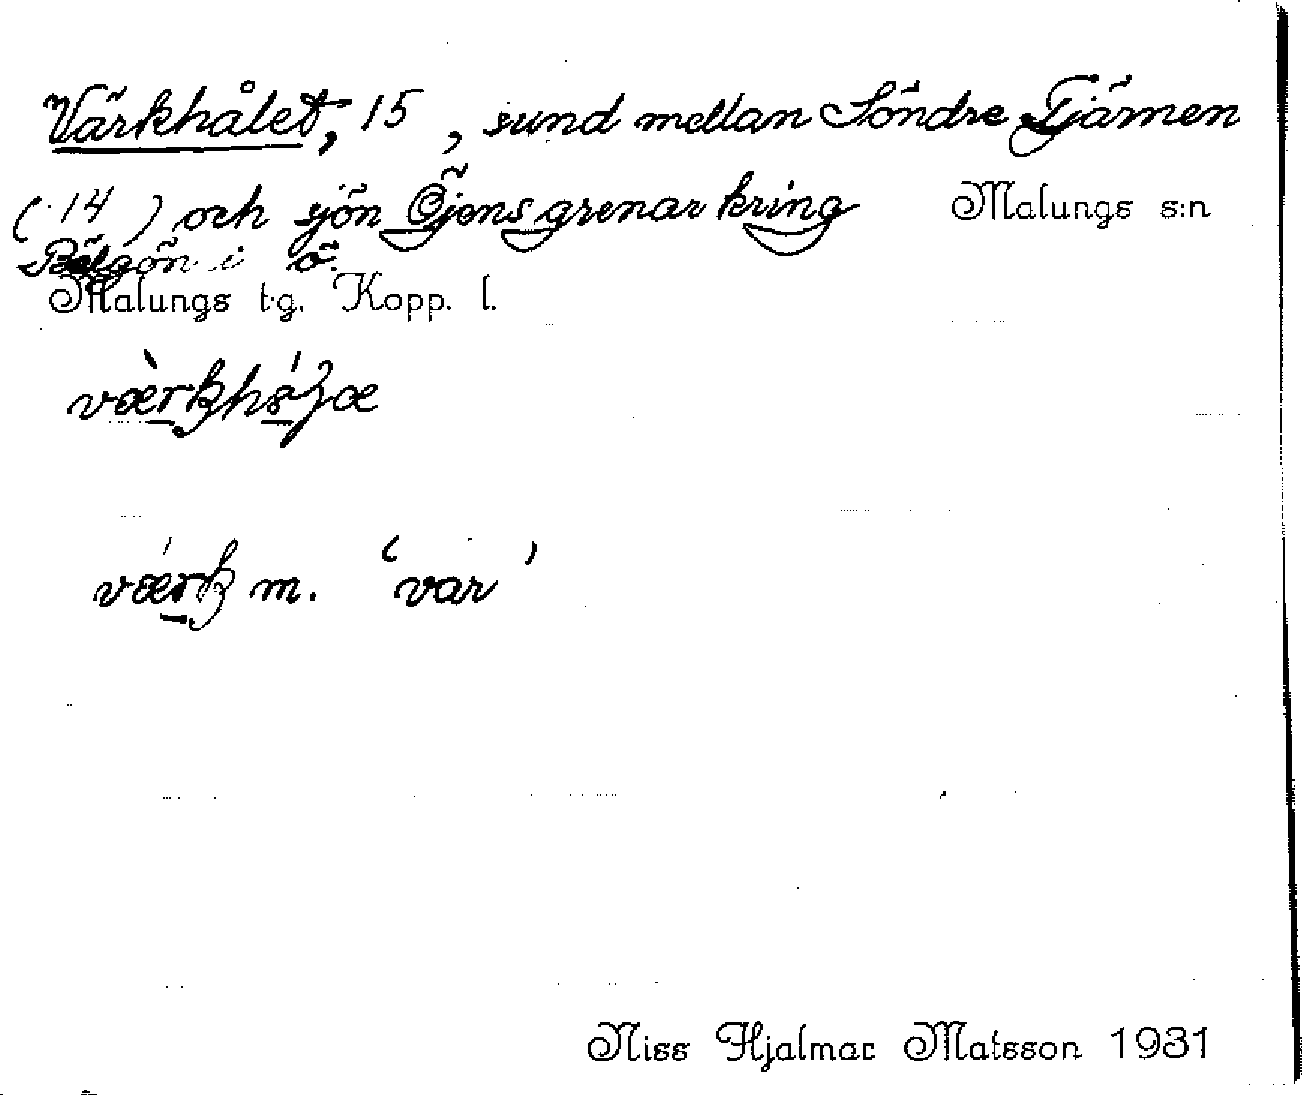 Värkhålet, 15 , sund mellan Söndre Tjärnen
(14) och sjön Öjens grenar kring Malungs s:n
Bälgön i ö.
Malungs t.g. Kopp. l.
værk m. 'var'
Niss Hjalmar Matsson 1931